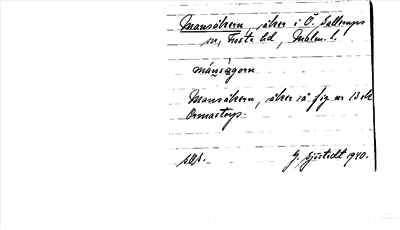 Mansåkern, åker i Ö. Sallerups
sn, Frosta hd, Malm. l.
mánsågorn
Mansåkern, åker på fig nr 13
Ormastorp.
G. Sjöstedt 1940.